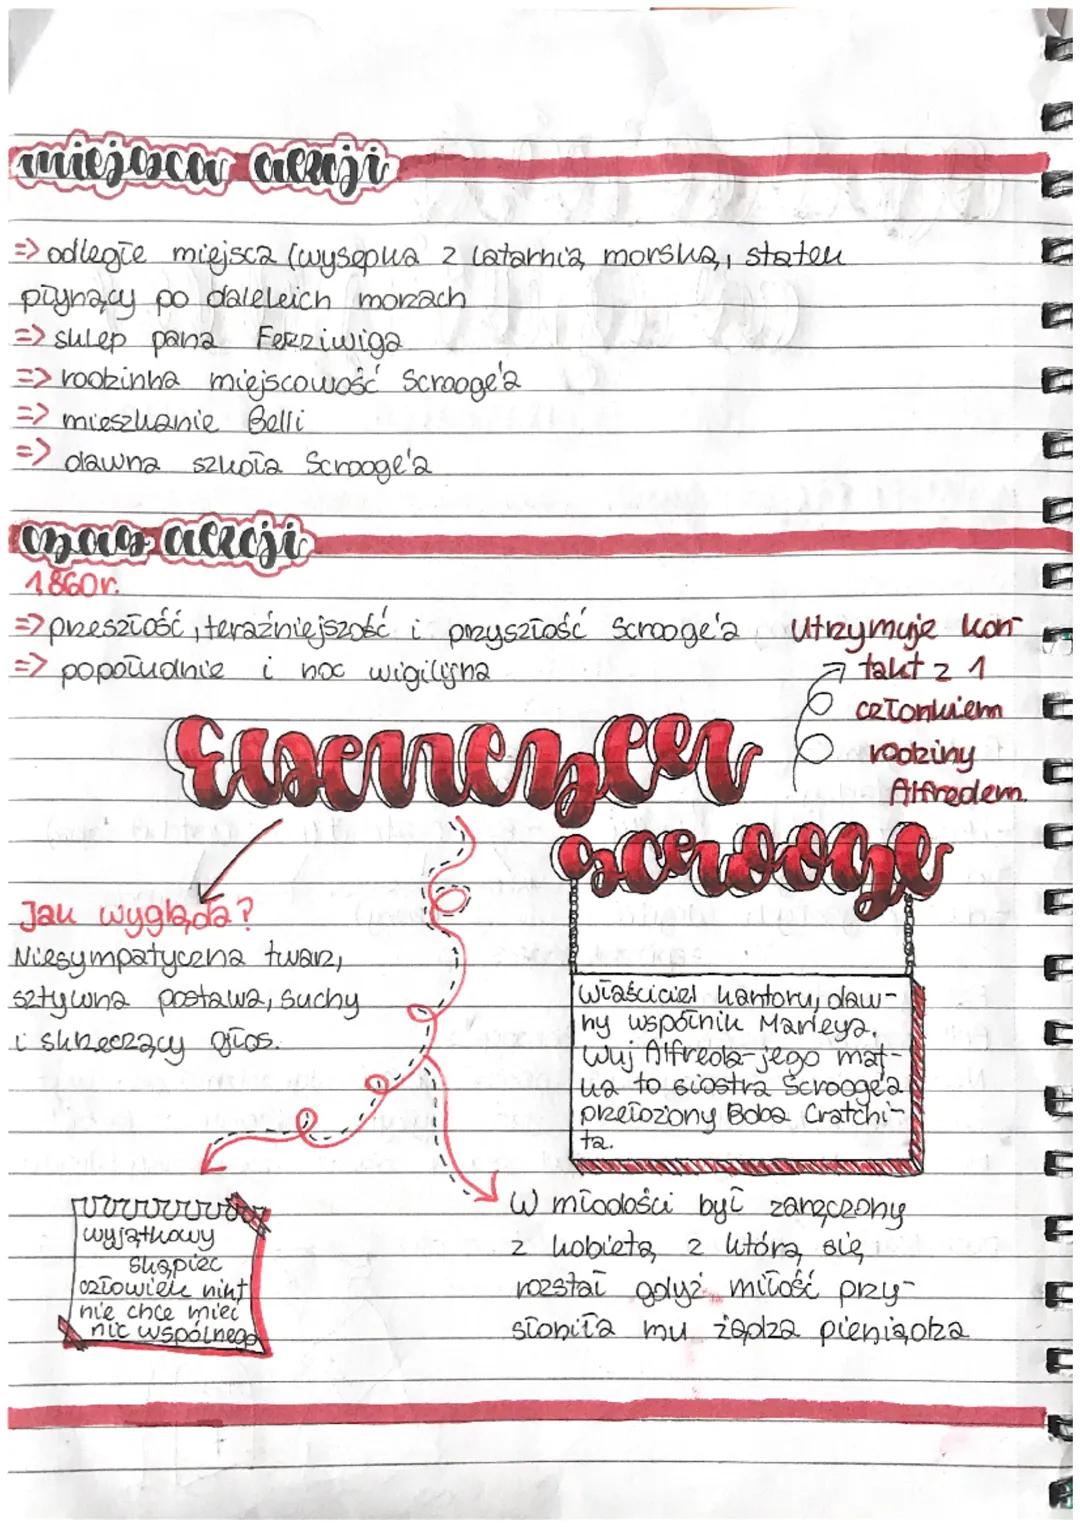 miejsca akcji
=> odległe miejsca (wysepka z latarnią morską, statek
płynący po dalekich morzach
=> sklep pana Fezziwiga
=> rodzinna miejscowość Scrooge'a
=> mieszkanie Belli
=> dawna szkoła Scrooge'a
czas akcji
1860r.
=> przeszłość, teraźniejszość i przyszłość Scrooge'a
=> popołudnie i noc wigilijna
Utrzymuje kon
takt z 1
członkiem
rodziny
Alfredem.
Ebenezer
scrooge
Jak wygląda?
Niesympatyczna twarz,
sztywna postawa, suchy
i skrzeczący głos.
właściciel kantoru, daw-
ny wspólnik Marleya.
Wuj Alfreda-jego mat-
ka to siostra Scrooge'a
przełożony Boba Cratchi-
ta.
wyjątkowy
skąpiec
człowiek nikt
nie chce mieć
nic wspólnego
W młodości był zaręczony
z kobietą z którą się
rozstał gdyż miłość przy-
słoniła mu żądza pieniądza